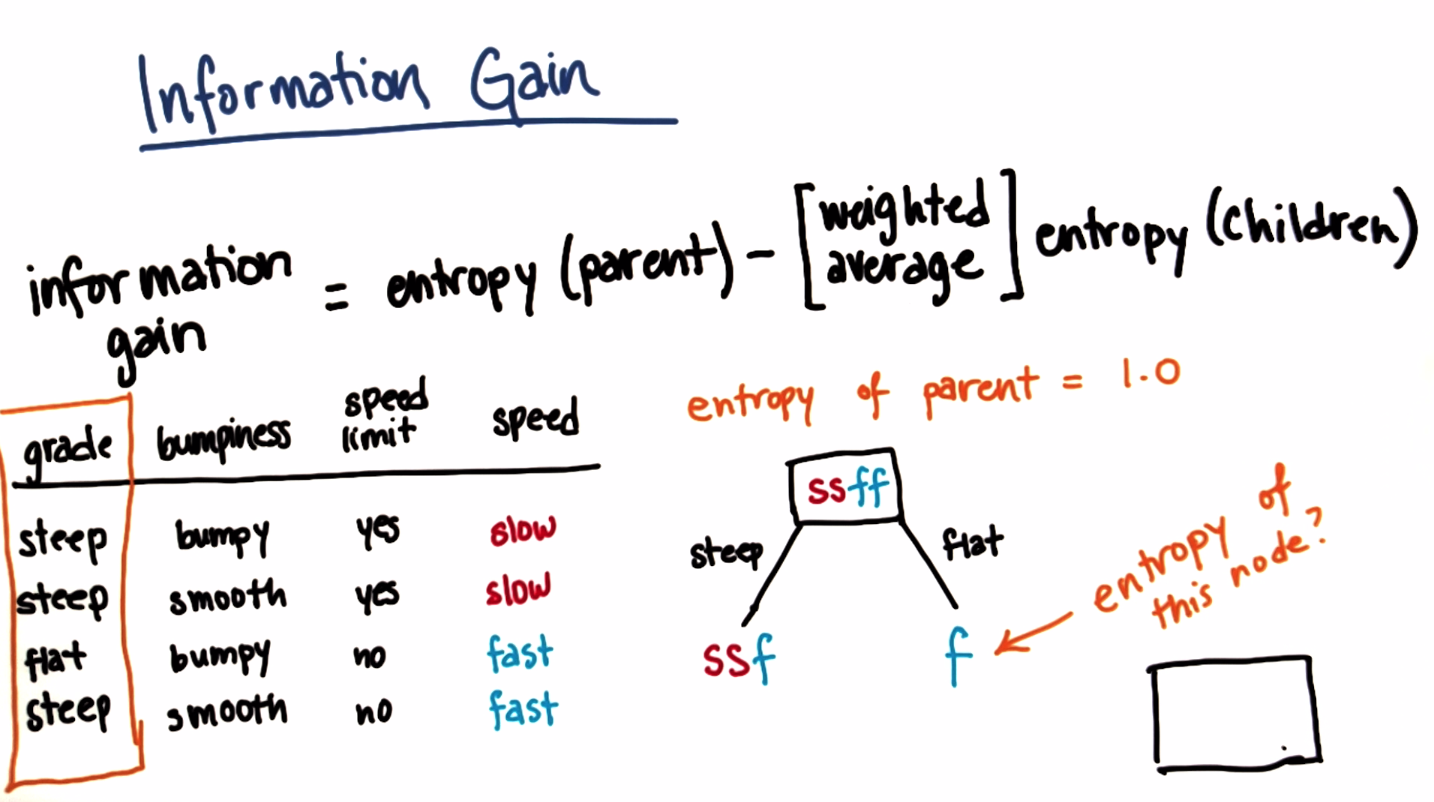 Information Gain
information gain = entropy (parent) - [weighted average] entropy (children)
grade bumpiness speed limit speed
steep bumpy yes slow
steep smooth yes slow
flat bumpy no fast
steep smooth no fast
entropy of parent = 1.0
ssff
steep flat
ssf f
entropy of
this node?